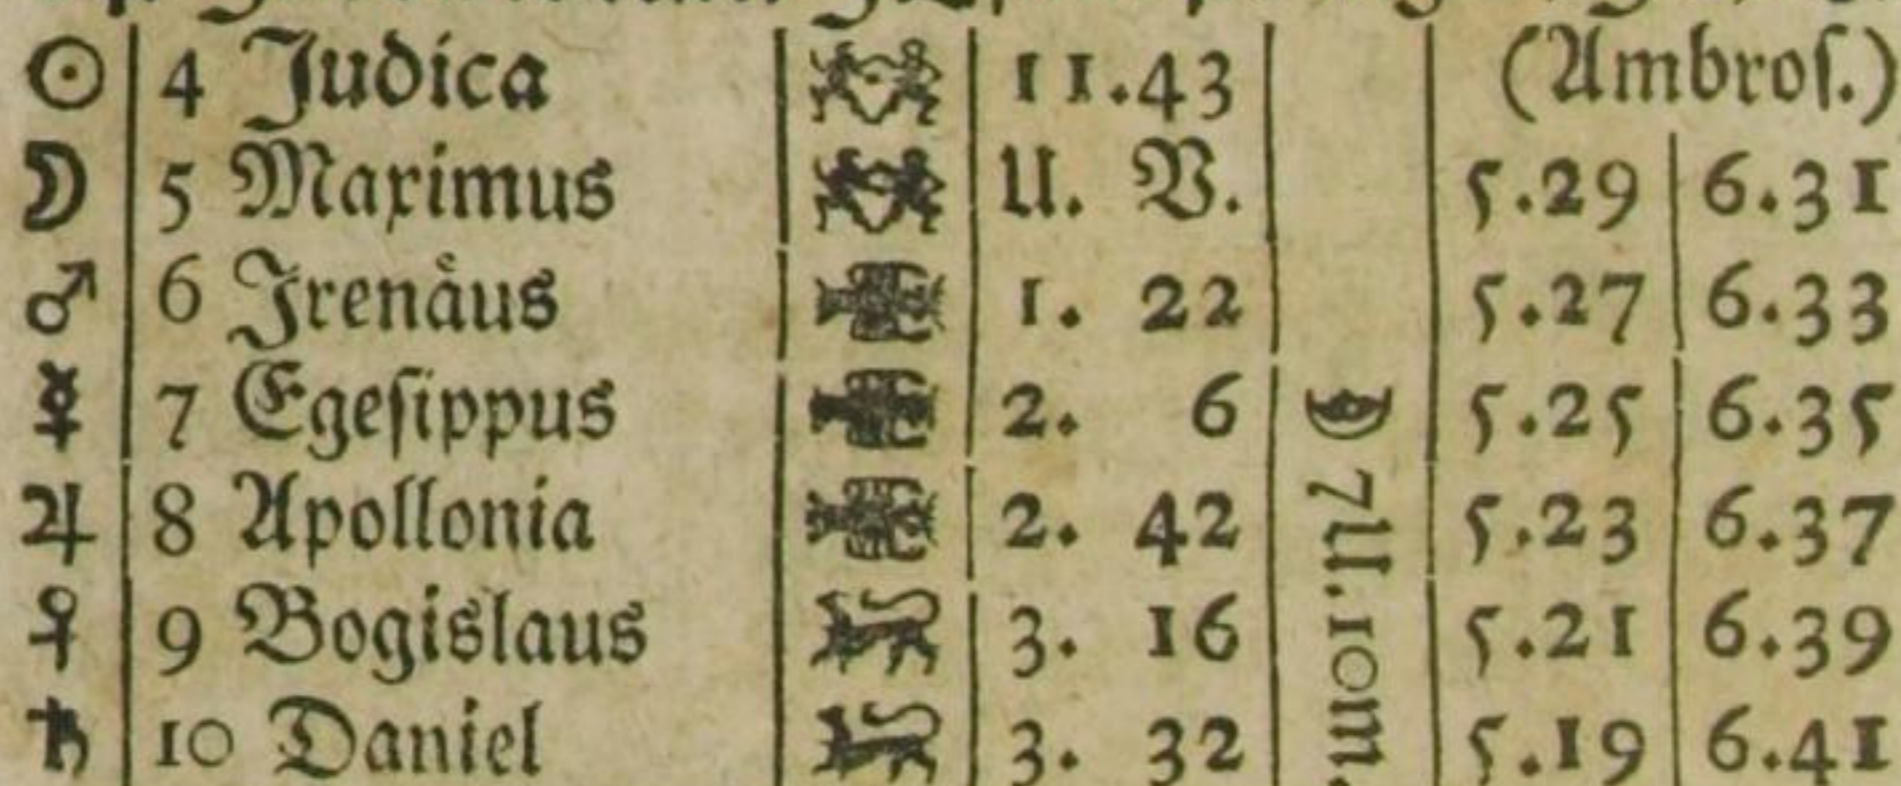 ☉ 4 Judica 11.43 (Ambroſ.)
☽ 5 Maximus U. V. 5.29 6.31
♂ 6 Jrenåus 1. 22 5.27 6.33
☿ 7 Egeſippus 2. 6 5.25 6.35
♃ 8 Apollonia 2. 42 5.23 6.37
♀ 9 Bogislaus 3. 16 5.21 6.39
♄ 10 Daniel 3. 32 5.19 6.41
7U.10m.